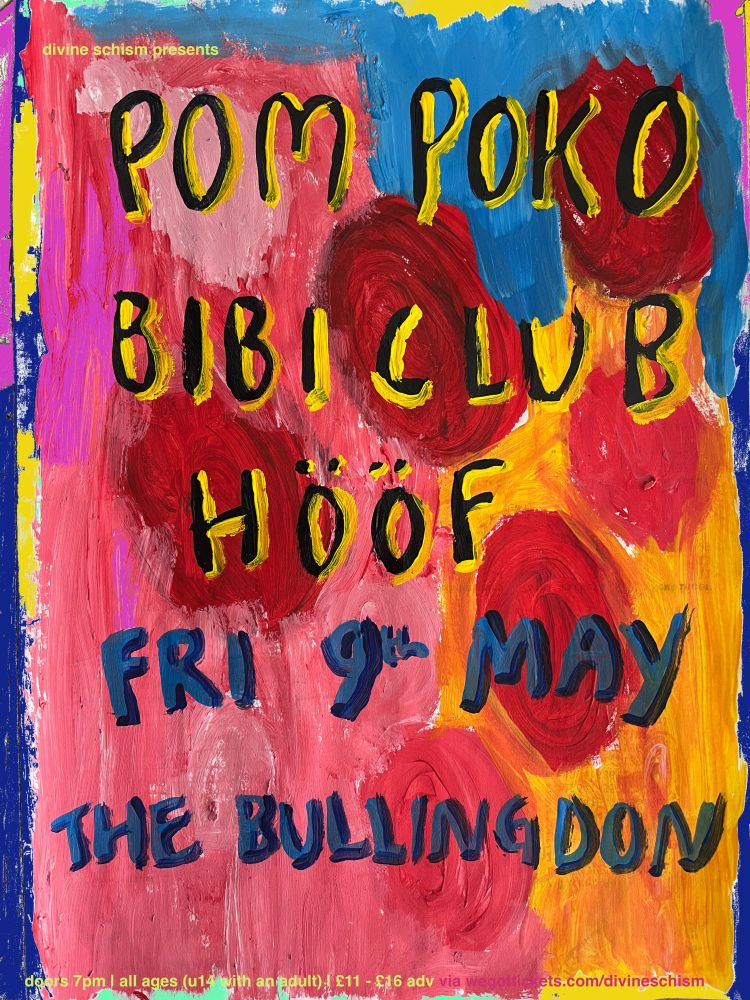 divine schism presents
POM POKO
BIBI CLUB
HÖÖF
FRI 9th MAY
THE BULLINGDON
doors 7pm | all ages (u14 with an adult) | £11 - £16 adv via wegottickets.com/divineschism